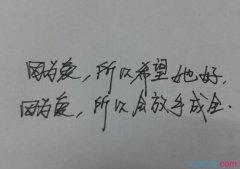 因为爱，所以希望她好，
因为爱，所以会放手成全.